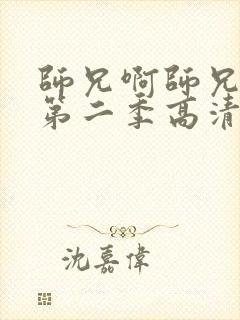 師兄啊師兄
第二季高清
沈嘉偉